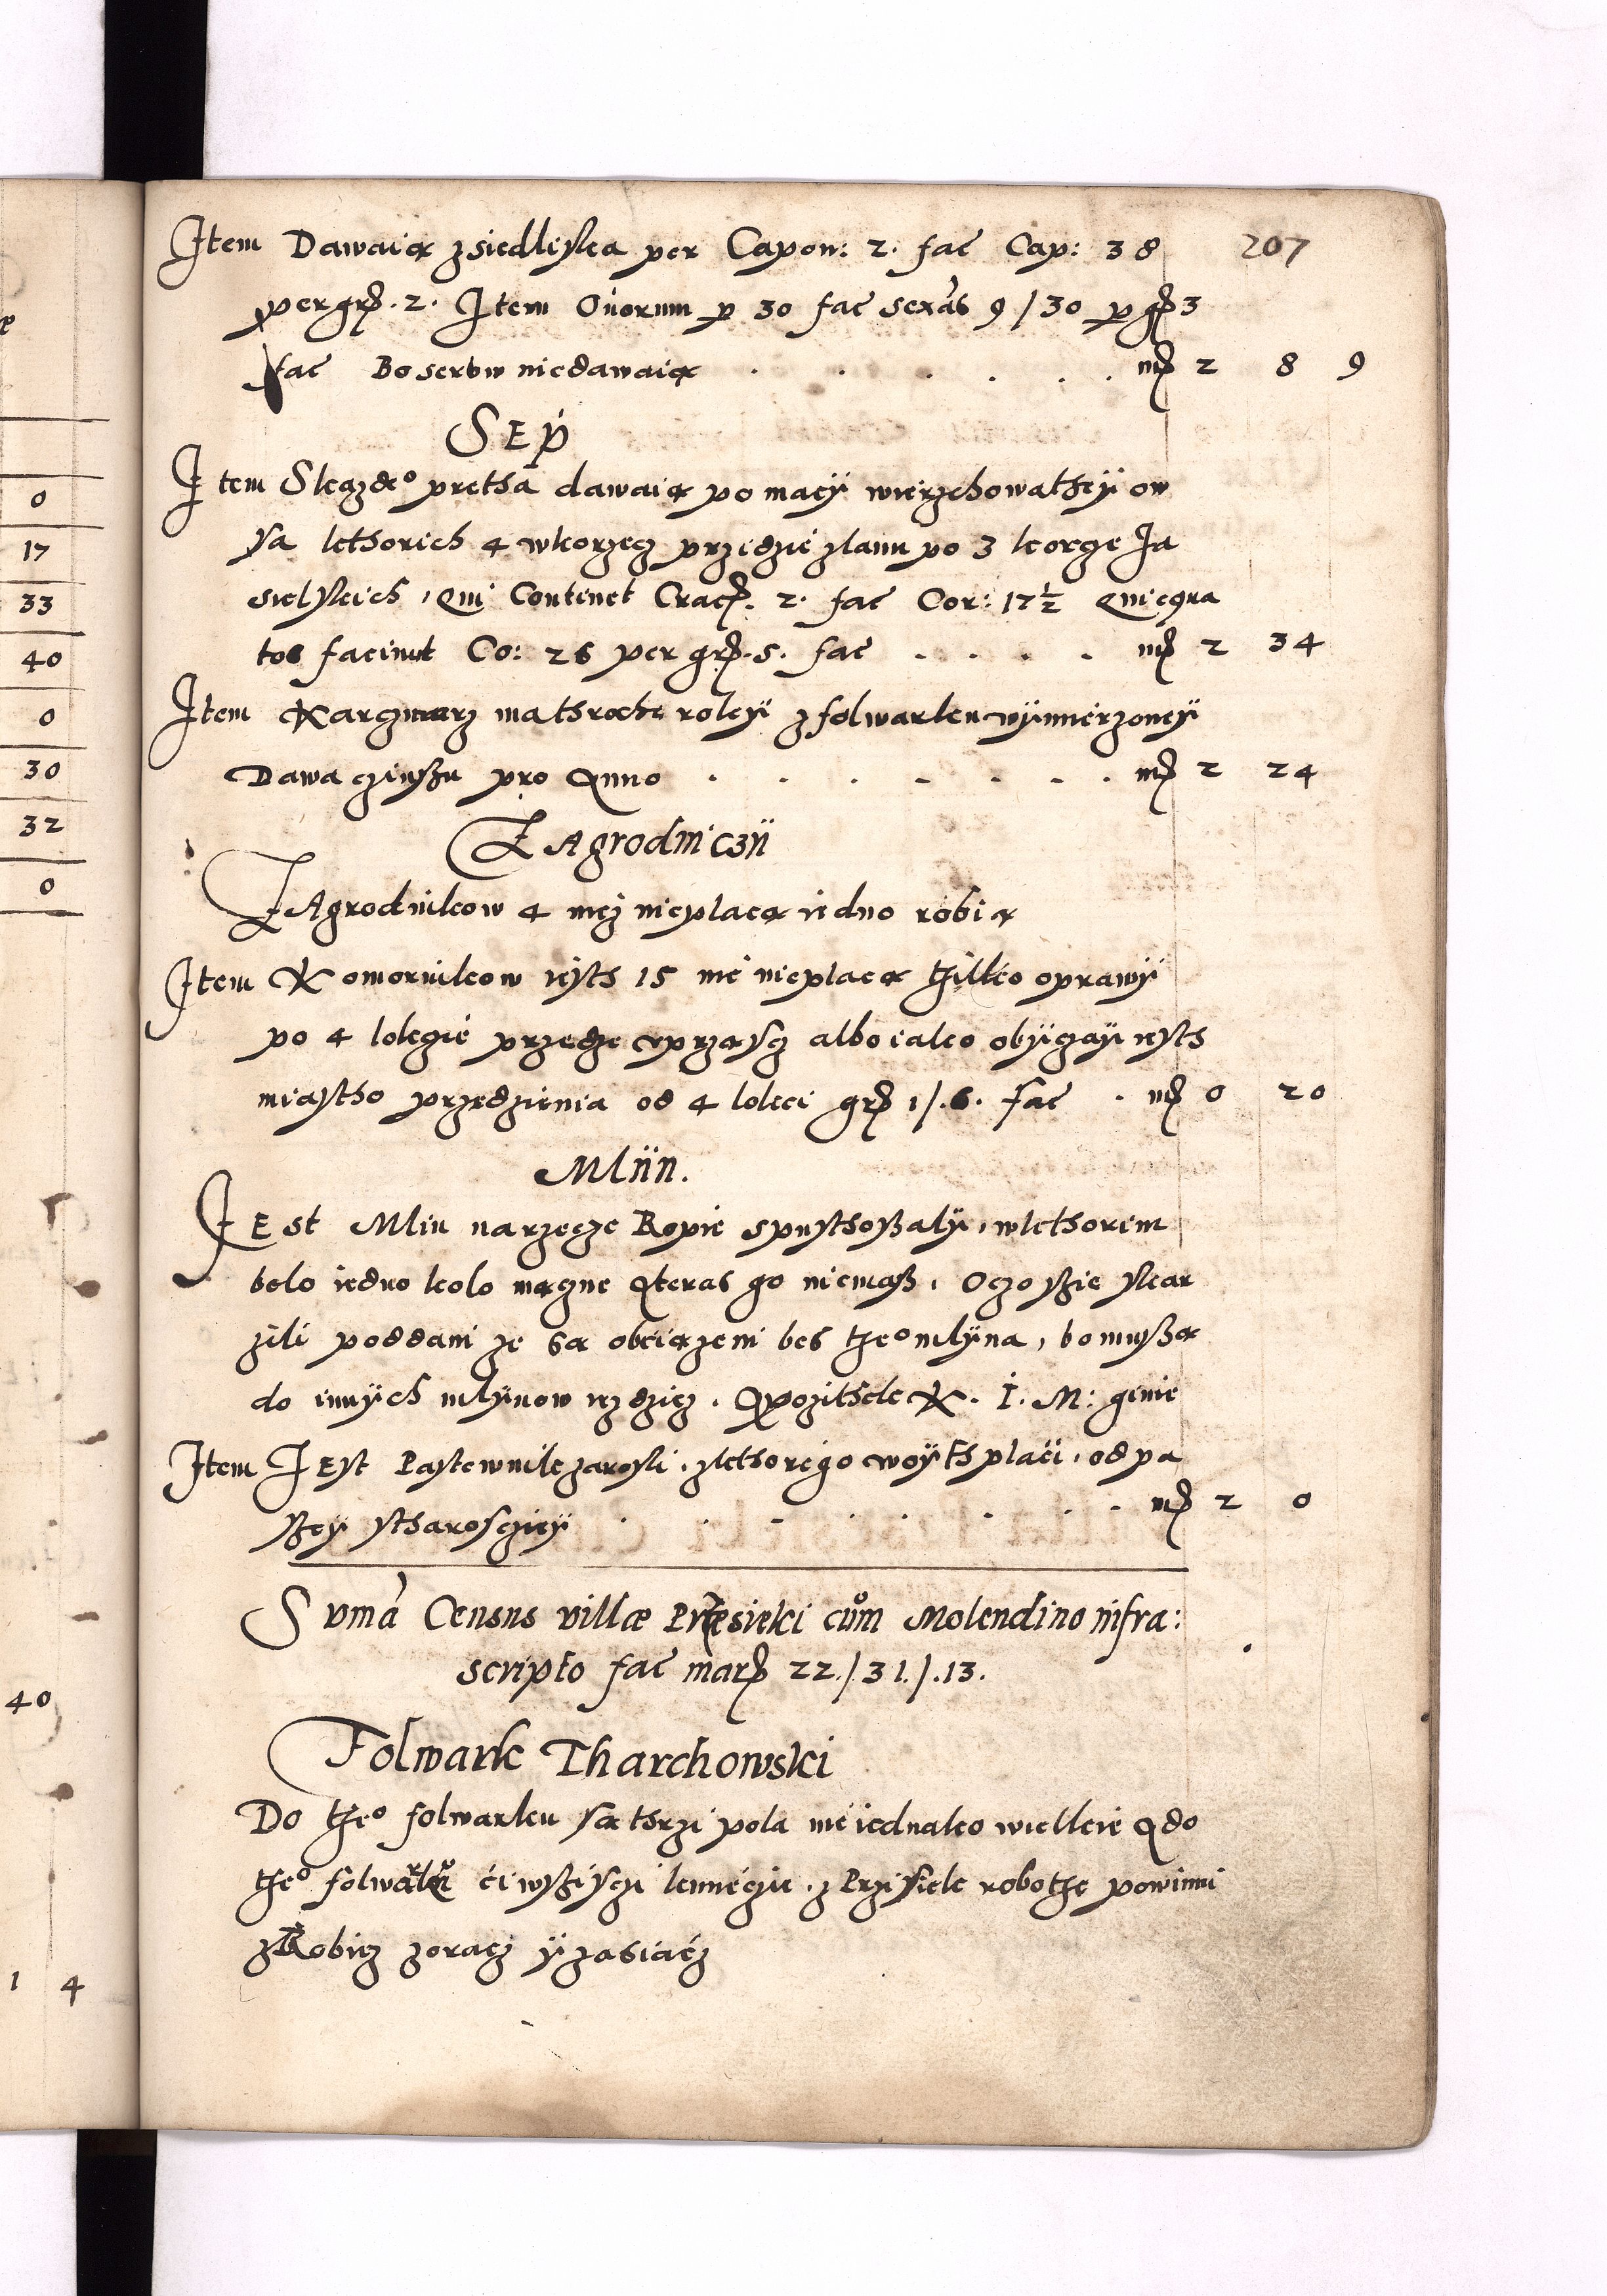 Item Dawaią zsiedliska per Capon: 2. fac Cap: 38
207
per gr. 2. Item Ouorum p 30 fac sexās 9/30 p gr 3
fac Bo serow niedawaią . . . . . . mr 2 8 9
SEp
Item Skażdeº prethā dawaią po maci wierzchowathey ow
sa kthorich 4 wkorzecz przidzie zlanu po 3 korcze Ja
sielskich, Qui Continet Crac. 2. fac Cor: 17½ Qui
tos faciunt Co: 26 per gr. 5. fac . . . . mr 2 34
Item Karczmarz ma throche roley z folwarku wÿmierzoneÿ
Dawa czinszu pro Anno . . . . . . . mr 2 24
ZAgrodniczÿ
ZAgrodnikow 4 nicz nieplacą iedno robią
Item Komornikow iest 15 nic nieplacą thilko oprawÿ
po 4 lokcie przedze uprząscz albo iako obÿczaÿ iest
miastho przedzienia od 4 lokci gr 1/.6. fac . mr 0 20
Mlÿn.
JEst Mlin narzecze Ropie spusthoszalÿ, wkthorim
belo iedno kolo mączne Ateras go niemasz, Oczo szie skar
zili poddani ze są obciązeni bes theº mlÿna, bo muszą
do innÿch mlÿnow iezdzicz. Apozithek K. J. M: ginie
Item JEst Pastewnik zarosli, zkthorego woÿth placi, od pa
szeÿ stharosczieÿ . . . . . . . . mr 2 0
Sumā Census villæ Przesieki cum Molendino infra:
scripto fac mar 22./31./.13.
Folwark Tharchowski
Do theº folwarku są thrzi pola nie iednako wielkie Ado
theº folwarku ci wszisczi kmiecie, z Przisiek robothe powinni
zRobicz zoracz ÿ zasiacz
0
17
33
40
0
30
32
0
40
1 4